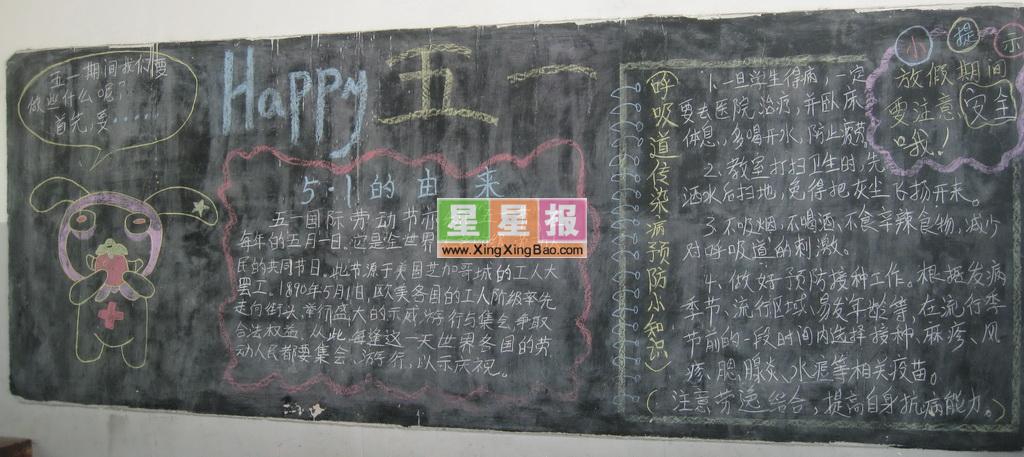 五一期间我们要
做些什么呢?
首先要……
Happy 五一
5·1的由来
五一国际劳动节亦
每年的五月一日,它是全世界
民的共同节日。此节源于美国芝加哥城的工人大
罢工。1890年5月1日,欧美各国的工人阶级率先
走向街头,举行盛大的示威游行与集会,争取
合法权益。从此,每逢这一天世界各国的劳
动人民都要集会、游行,以示庆祝。
星星报
www.XingXingBao.com
呼吸道传染病预防小知识
1.一旦学生得病,一定
要去医院治疗,并卧床
休息,多喝开水,防止疲劳。
2.教室打扫卫生时,先
洒水后扫地,免得把灰尘飞扬开来。
3.不吸烟,不喝酒,不食辛辣食物,减少
对呼吸道的刺激。
4、做好预防接种工作。根据发病
季节、流行区域、易发年龄等,在流行季
节前的一段时间内选择接种、麻疹、风
疹、腮腺炎、水痘等相关疫苗。
(注意劳逸结合,提高自身抗病能力。)
小提示
放假期间
要注意安全
哦!